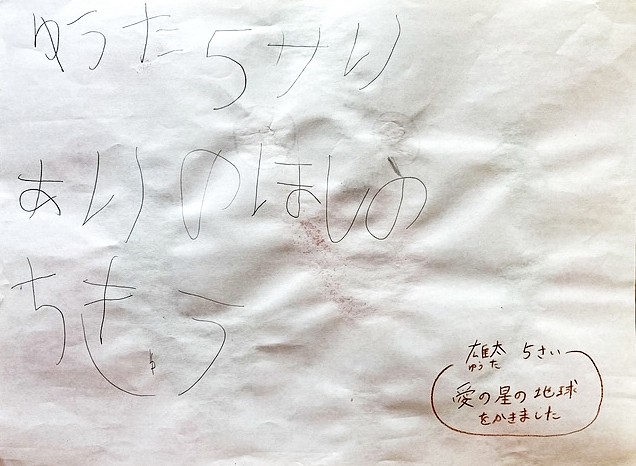 ゆうた5サい
あいのほしの
ちきゅう
雄太 5さい
ゆうた
愛の星の地球
をかきました